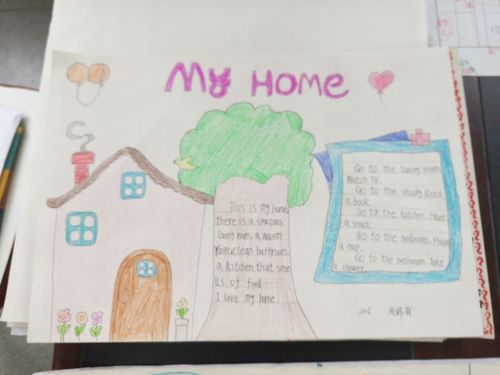 My HOME
This is my home,
there is a spacious
living room, a warm
room, clean bathroom,
a kitchen that sme
lls of food.
I love my home.
Go to the living room.
Watch TV.
Go to the study. Read
a book.
Go to the kitchen. Have
a snack.
Go to the bedroom. Have
a nap.
Go to the bathroom. Take
a shower.